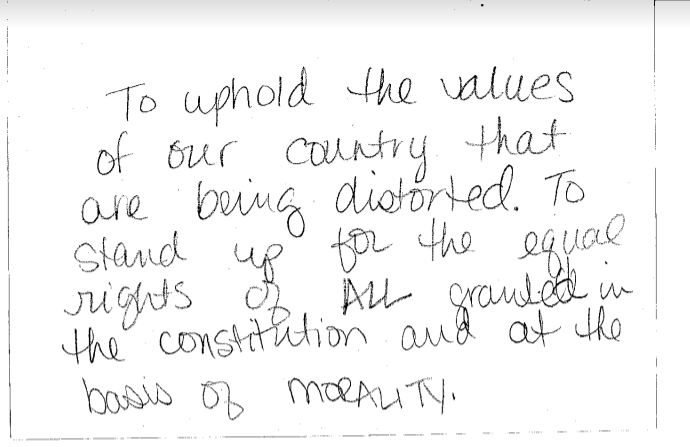 To uphold the values
of our country that
are being distorted. To
stand up for the equal
rights of ALL granted in
the constitution and at the
basis of MORALITY.